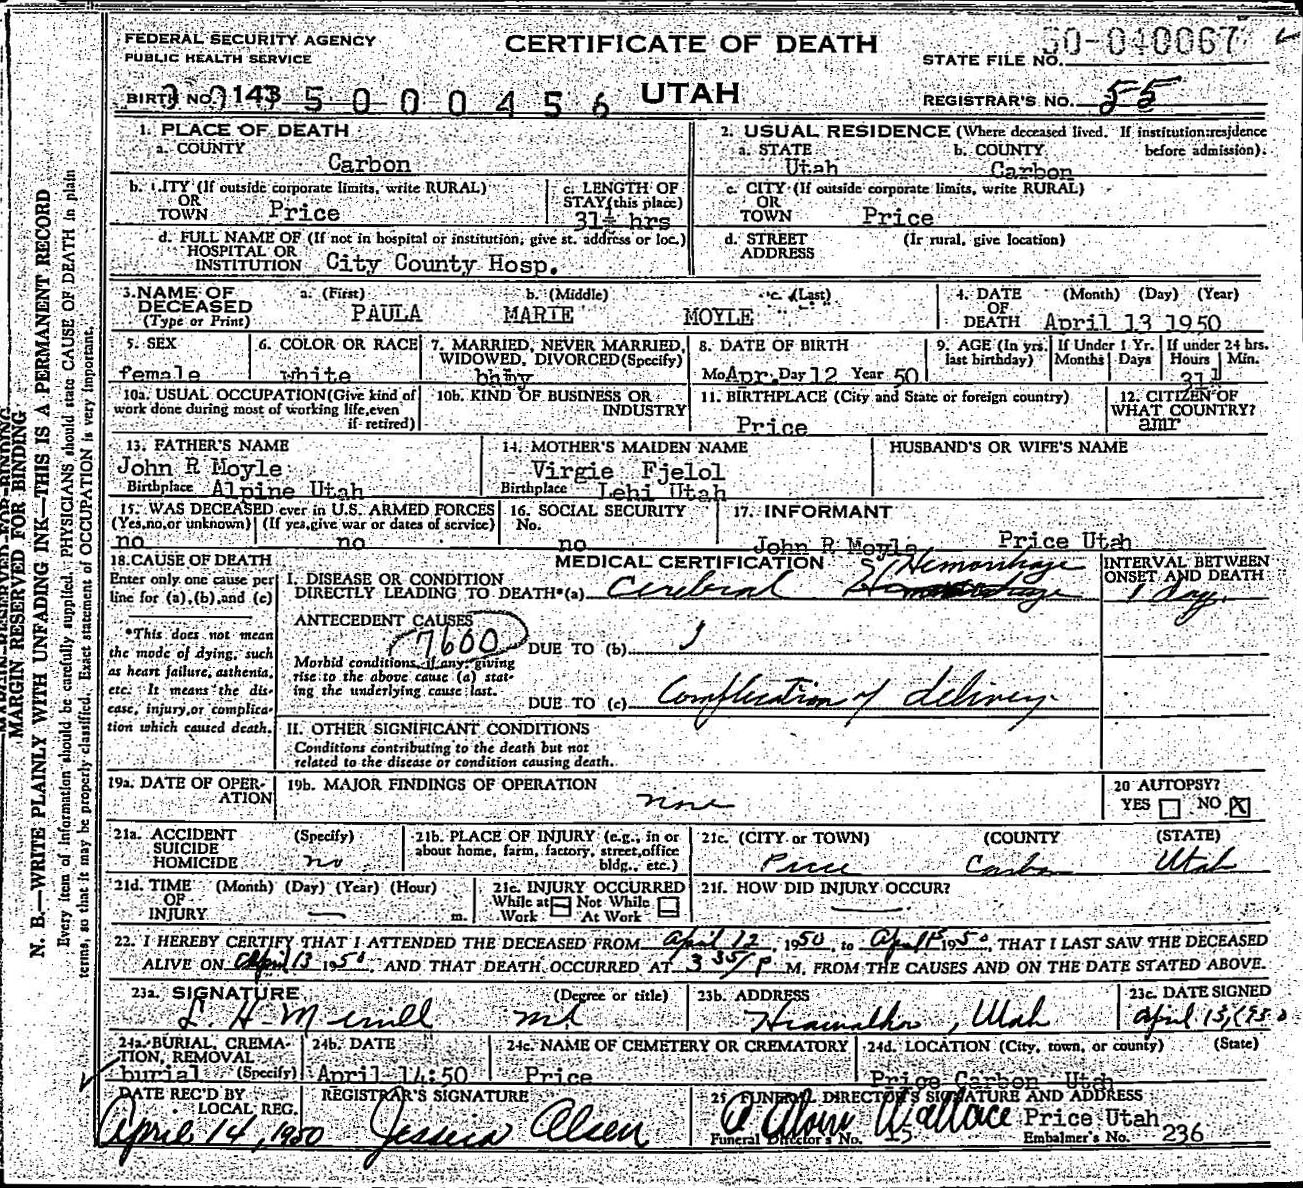 FEDERAL SECURITY AGENCY
PUBLIC HEALTH SERVICE
CERTIFICATE OF DEATH
UTAH
STATE FILE NO. 50-040067
REGISTRAR'S NO. 55
BIRTH NO. 143 5 0 0 0 4 5 6
1. PLACE OF DEATH
a. COUNTY Carbon
2. USUAL RESIDENCE (Where deceased lived. If institution: residence before admission).
a. STATE Utah b. COUNTY Carbon
b. CITY (If outside corporate limits, write RURAL) OR TOWN Price
c. LENGTH OF STAY (this place) 31½ hrs
c. CITY (If outside corporate limits, write RURAL) OR TOWN Price
d. FULL NAME OF (If not in hospital or institution, give st. address or loc.) HOSPITAL OR INSTITUTION City County Hosp.
d. STREET ADDRESS (If rural, give location)
3. NAME OF DECEASED (Type or Print) a. (First) PAULA b. (Middle) MARIE c. (Last) MOYLE
4. DATE OF DEATH (Month) (Day) (Year) April 13 1950
5. SEX female
6. COLOR OR RACE white
7. MARRIED, NEVER MARRIED, WIDOWED, DIVORCED (Specify) baby
8. DATE OF BIRTH Mo Apr. Day 12 Year 50
9. AGE (In yrs. last birthday) If Under 1 Yr. Months Days If under 24 hrs. Hours Min. 31
10a. USUAL OCCUPATION (Give kind of work done during most of working life, even if retired)
10b. KIND OF BUSINESS OR INDUSTRY
11. BIRTHPLACE (City and State or foreign country) Price
12. CITIZEN OF WHAT COUNTRY? amr
13. FATHER'S NAME John R Moyle
Birthplace Alpine Utah
14. MOTHER'S MAIDEN NAME Virgie Fjelol
Birthplace Lehi Utah
HUSBAND'S OR WIFE'S NAME
15. WAS DECEASED ever in U.S. ARMED FORCES (Yes, no, or unknown) no (If yes, give war or dates of service) no
16. SOCIAL SECURITY No. no
17. INFORMANT John R Moyle Price Utah
18. CAUSE OF DEATH
Enter only one cause per line for (a), (b), and (c)
*This does not mean the mode of dying, such as heart failure, asthenia, etc. It means the disease, injury, or complication which caused death.
MEDICAL CERTIFICATION
INTERVAL BETWEEN ONSET AND DEATH
I. DISEASE OR CONDITION DIRECTLY LEADING TO DEATH*(a) Cerebral Hemorrhage 1 day
ANTECEDENT CAUSES
7600
DUE TO (b)
Morbid conditions, if any, giving rise to the above cause (a) stating the underlying cause last.
DUE TO (c) Complication of delivery
II. OTHER SIGNIFICANT CONDITIONS
Conditions contributing to the death but not related to the disease or condition causing death.
19a. DATE OF OPERATION
19b. MAJOR FINDINGS OF OPERATION none
20 AUTOPSY? YES NO X
21a. ACCIDENT SUICIDE HOMICIDE (Specify) no
21b. PLACE OF INJURY (e.g., in or about home, farm, factory, street, office bldg., etc.)
21c. (CITY or TOWN) (COUNTY (STATE)
Price Carbon Utah
21d. TIME OF INJURY (Month) (Day) (Year) (Hour) m.
21e. INJURY OCCURRED While at Work Not While At Work
21f. HOW DID INJURY OCCUR?
22. I HEREBY CERTIFY THAT I ATTENDED THE DECEASED FROM April 12, 1950, to April 1950, THAT I LAST SAW THE DECEASED
ALIVE ON April 13 1950, AND THAT DEATH OCCURRED AT 3 35/P M, FROM THE CAUSES AND ON THE DATE STATED ABOVE.
23a. SIGNATURE (Degree or title) L. H. Merrill md
23b. ADDRESS Hiawatha, Utah
23c. DATE SIGNED April 13, 1950
24a. BURIAL, CREMATION, REMOVAL (Specify) burial
24b. DATE April 14:50
24c. NAME OF CEMETERY OR CREMATORY Price
24d. LOCATION (City, town, or county) (State) Price Carbon Utah
DATE REC'D BY LOCAL REG. April 14, 1950
REGISTRAR'S SIGNATURE Jessica Olsen
25. FUNERAL DIRECTOR'S SIGNATURE AND ADDRESS Wallace Price Utah
Funeral Director's No. 15 Embalmer's No. 236
MARGIN RESERVED FOR BINDING
N. B.—WRITE PLAINLY WITH UNFADING INK—THIS IS A PERMANENT RECORD
Every item of information should be carefully supplied. PHYSICIANS should state CAUSE OF DEATH in plain
terms, so that it may be properly classified. Exact statement of OCCUPATION is very important.